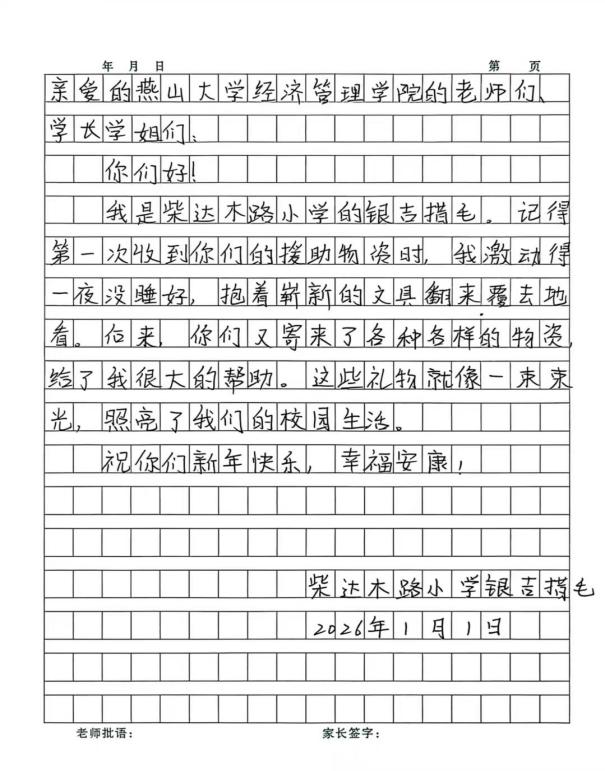 年 月 日 第 页
亲爱的燕山大学经济管理学院的老师们、
学长学姐们：
你们好！
我是柴达木路小学的银吉措毛。记得
第一次收到你们的援助物资时，我激动得
一夜没睡好，抱着崭新的文具翻来覆去地
看。后来，你们又寄来了各种各样的物资，
给了我很大的帮助。这些礼物就像一束束
光，照亮了我们的校园生活。
祝你们新年快乐，幸福安康！
柴达木路小学银吉措毛
2026年1月1日
老师批语： 家长签字：